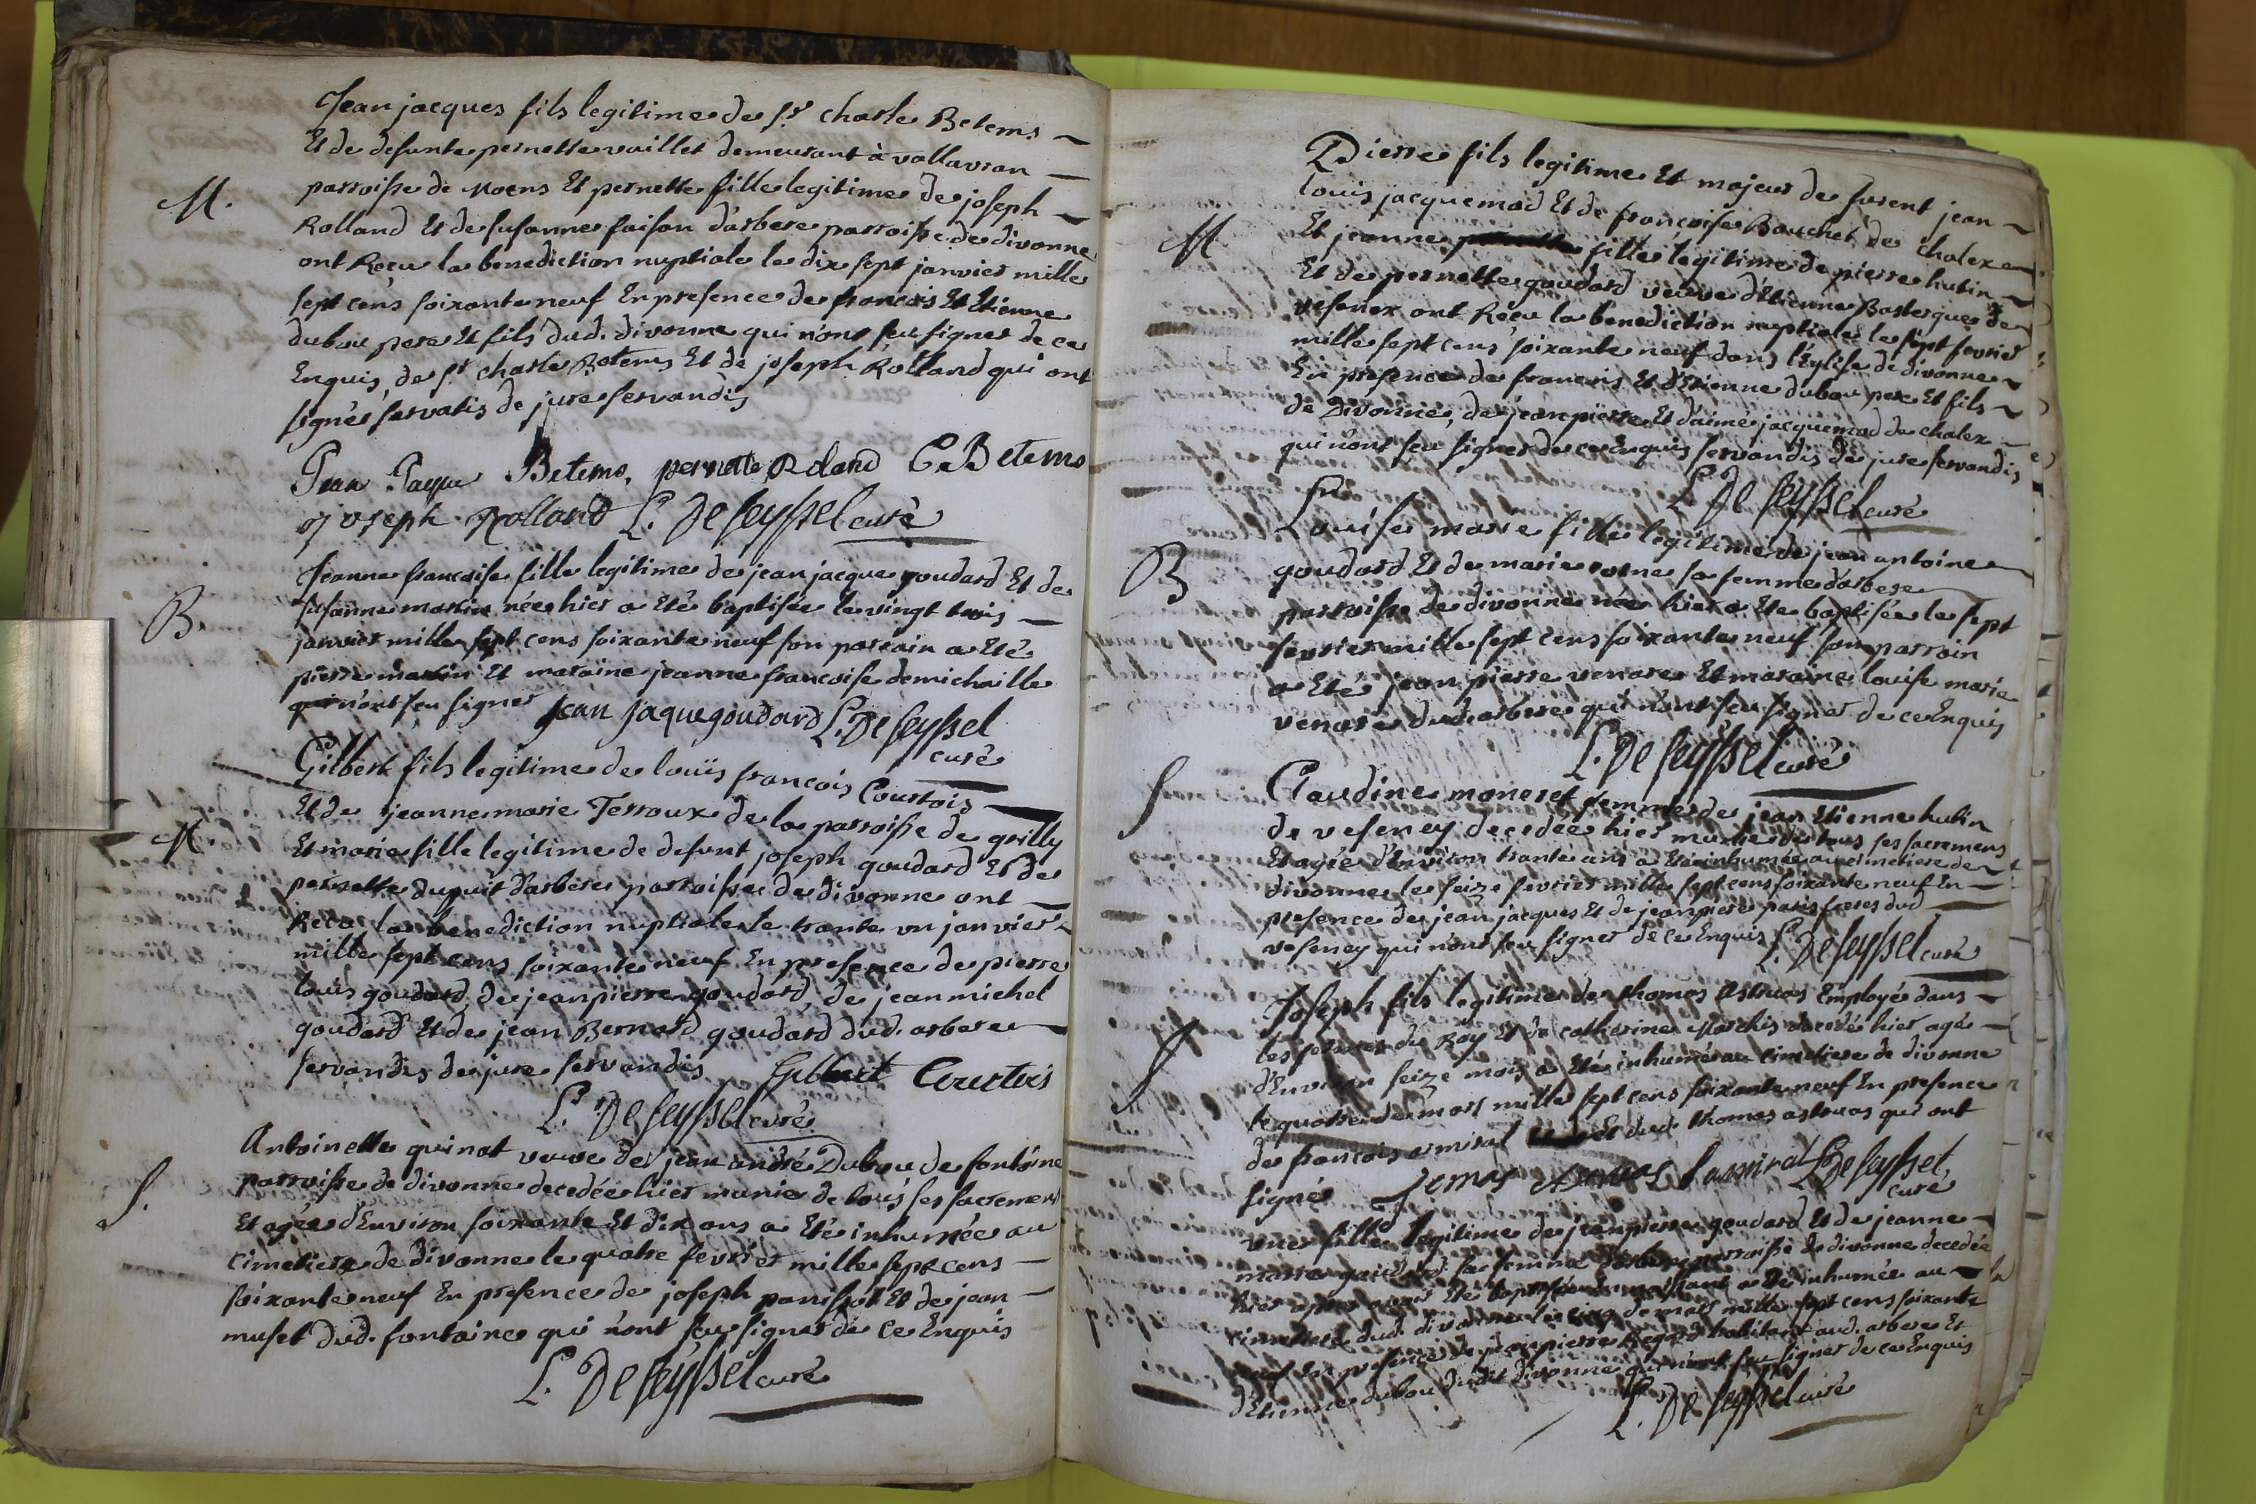 Jean jacques fils legitime de Sr. charle Betems
Et de defunte pernette vaillet demeurant à vallavran
M. parroisse de Moens Et pernette fille legitime de joseph
Rolland Et de susanne faison d'arbere parroisse de divonne
ont Recu la benediction nuptiale le dix sept janvier mille
sept cens soixante neuf En presence de francois Et Etienne
dubou pere Et fils dud. divonne qui n'ont seu signer de ce
Enquis, de Sr. charle Betems Et de joseph Rolland qui ont
signés servatis de jure servandis
Jean Jaque Betems, pernette Roland C Betems
joseph Rolland L. De seyssel curé
Jeanne francoise fille legitime de jean jacque goudard Et de
B. susanne martin née hier a Eté baptisée le vingt trois
janvier mille sept cens soixante neuf son parrain a Eté
pierre martin Et maraine jeanne francoise demichaille
qui n'ont seu signer Jean Jaque goudard L. De seyssel
curé
Gilbert fils legitime de louis francois Courtois
Et de jeanne marie Terroux de la parroisse de grilly
M Et marie fille legitime de defunt joseph goudard Et de
pernette dupuit d'arbere parroisse de divonne ont
Recu la benediction nuptiale le trante un janvier
mille sept cens soixante neuf En presence de pierre
louis goudard, de jean pierre goudard, de jean michel
goudard Et de jean Bernard goudard dud. arbere
servandis de jure servandis Gilbert Courtois
L. De seyssel curé
Antoinette quinat veuve de jean andré Dubou de fontaine
S. parroisse de divonne decedée hier munie de tous ses sacremens
Et agée d'Environ soixante Et dix ans a Eté inhumée au
cimetiere de divonne le quatre fevrier mille sept cens
soixante neuf En presence de joseph panissot Et de jean
muset dud. fontaine qui n'ont seu signer de ce Enquis
L. De seyssel curé
Pierre fils legitime Et majeur de furent jean
louis jacquemod Et de francoise Bouchet de chalex
M Et jeanne fille legitime de pierre hutin
Et de pernette goudard veuve d'Etienne de
vesenex ont Recu la benediction nuptiale le sept fevrier
mille sept cens soixante neuf dans l'Eglise de divonne
En presence de francois Et d'Etienne dubou pere Et fils
de Divonne, de jean pierre Et d'aimé jacquemod de chalex
qui n'ont seu signer de ce Enquis servandis de jure servandis
L. De seyssel curé
Louise marie fille legitime de jean antoine
B goudard Et de marie sa femme d'arbere
parroisse de divonne née hier a Eté baptisée le sept
fevrier mille sept cens soixante neuf son parrain
a Eté jean pierre venare Et maraine louise marie
venare dud. arbere qui n'ont seu signer de ce Enquis
L. De seyssel curé
S Claudine moneret femme de jean Etienne hutin
de veseney decedée hier munie de tous ses sacremens
Et agée d'Environ trante ans a Eté inhumée au cimetiere de
divonne le seize fevrier mille sept cens soixante neuf En
presence de jean jacques Et de jean piere paris freres dud
veseney qui n'ont seu signer de ce Enquis L. De seyssel curé
Joseph fils legitime de thomas astruas Employé dans
S les fermes du Roy Et de catherine Marchis decedé hier agé
d'Environ seize mois a Eté inhumé au cimetiere de divonne
le quatre de mars mille sept cens soixante neuf En presence
de francois amiral Et dud. thomas astruas qui ont
signé lamiral L. De seyssel
curé
une fille legitime de jean pierre goudard Et de jeanne
marie sa femme d'arbere parroisse de divonne decedée
hier apres avoir Eté baptisée En naissant a Eté inhumée au
cimetiere dud. divonne le cinq de mars mille sept cens soixante
neuf En presence de jean pierre Regard habitant aud. arbere Et
d'Etienne dubou dudit divonne qui n'ont seu signer de ce Enquis
L. De seyssel curé